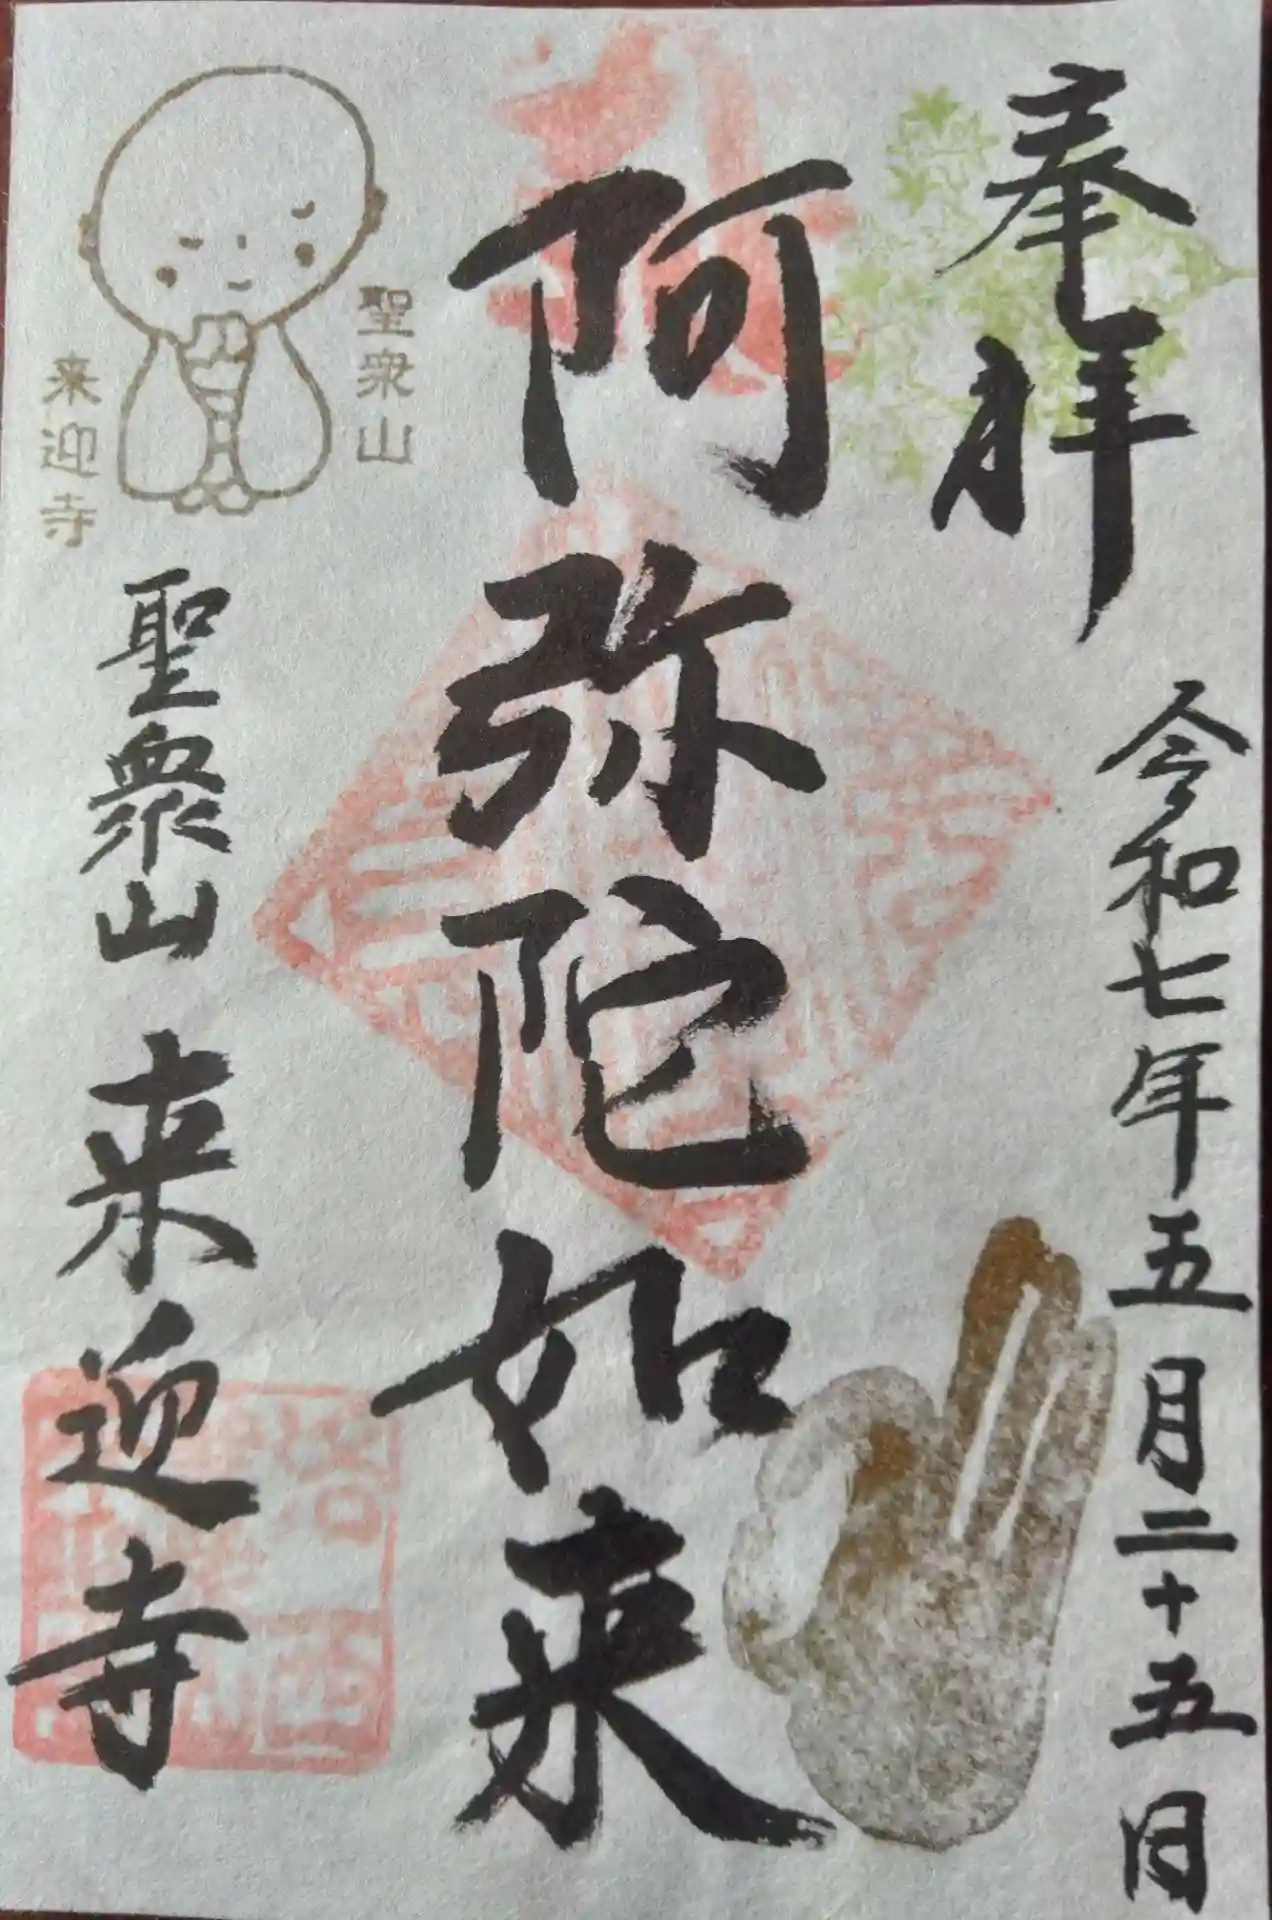 奉拝
令和七年五月二十五日
阿弥陀如来
聖衆山
来迎寺
聖衆山 来迎寺